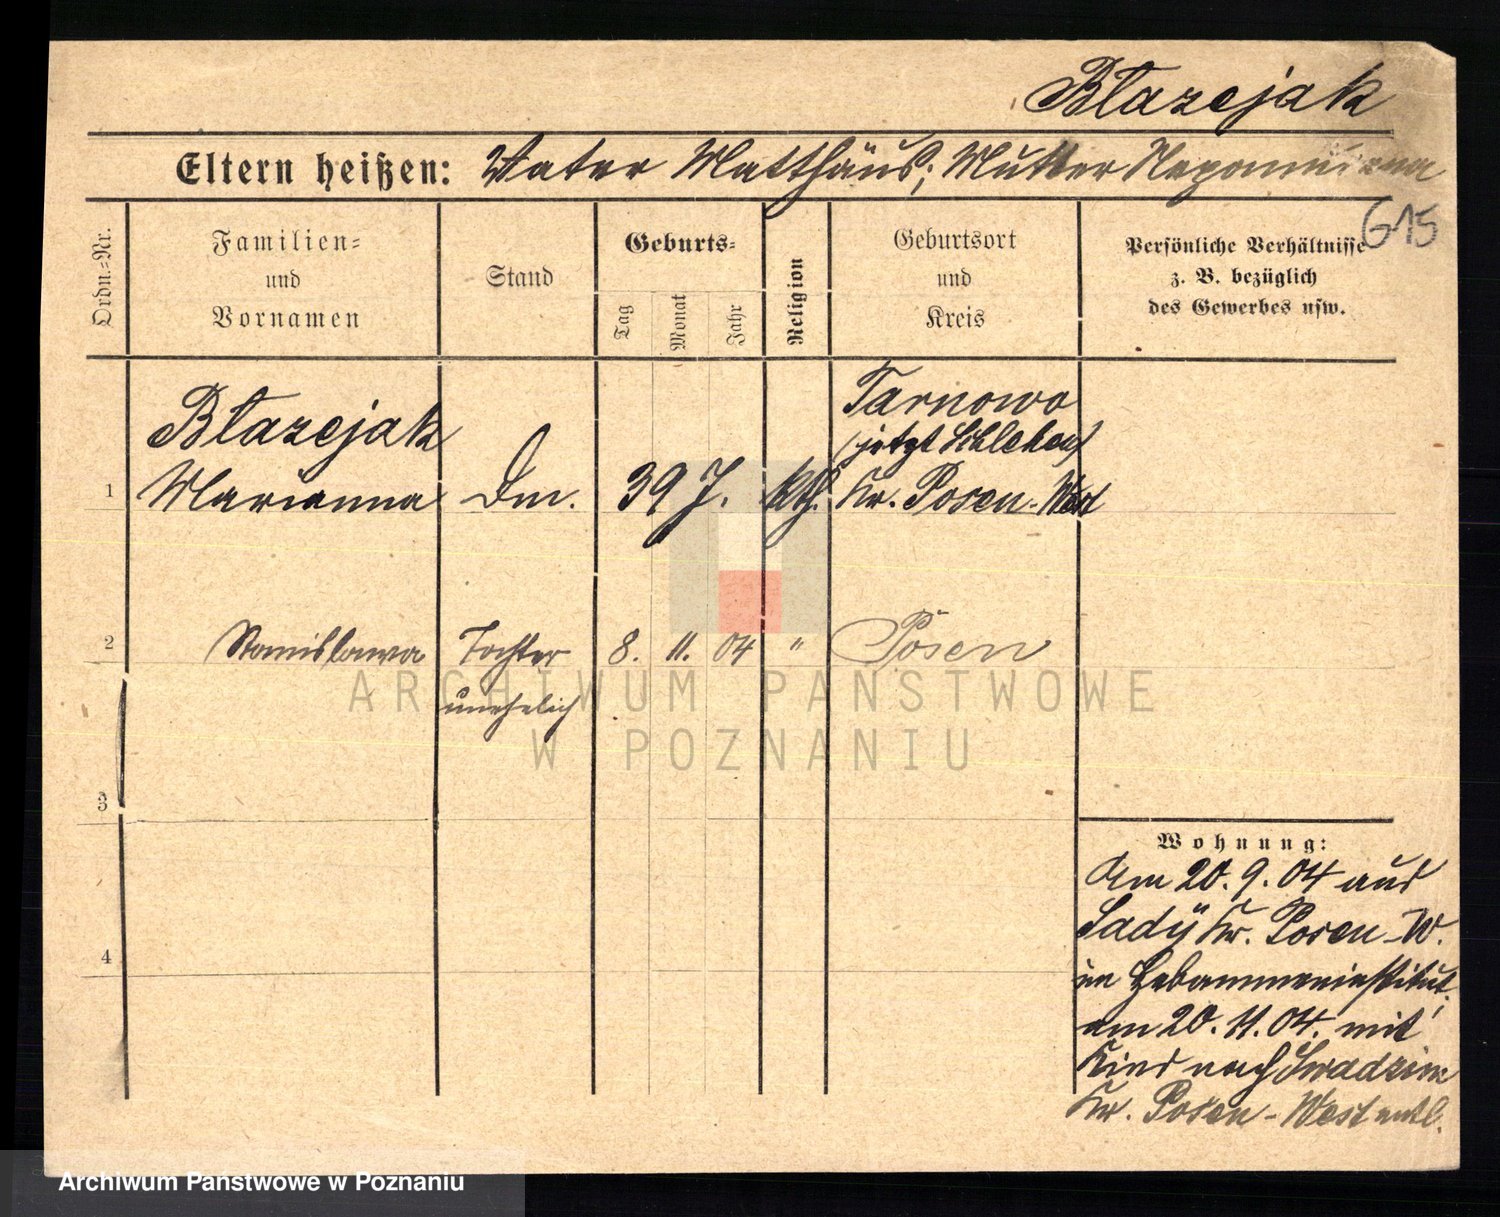 Błazejak
Eltern heißen: Vater Matthäus; Mutter Nepomucena
615
Ordn.-Nr.
Familien-
und
Vornamen
Stand
Geburts-
Tag
Monat
Jahr
Religion
Geburtsort
und
Kreis
Persönliche Verhältnisse
z. B. bezüglich
des Gewerbes usw.
Błazejak
Tarnowo
(jetzt Schlehen)
1 Marianna Dm. 39 J. kth. Kr. Posen-West
2 Stanislawa Tochter 8. 11. 04 " Posen
unehelich
ARCHIWUM PAŃSTWOWE
W POZNANIU
3
Wohnung:
Am 20. 9. 04 aus
Sady Kr. Posen-W.
im Hebammeninstitut.
4
am 20. 11. 04. mit
Kind nach Swadzim
Kr. Posen-West entl.
Archiwum Państwowe w Poznaniu